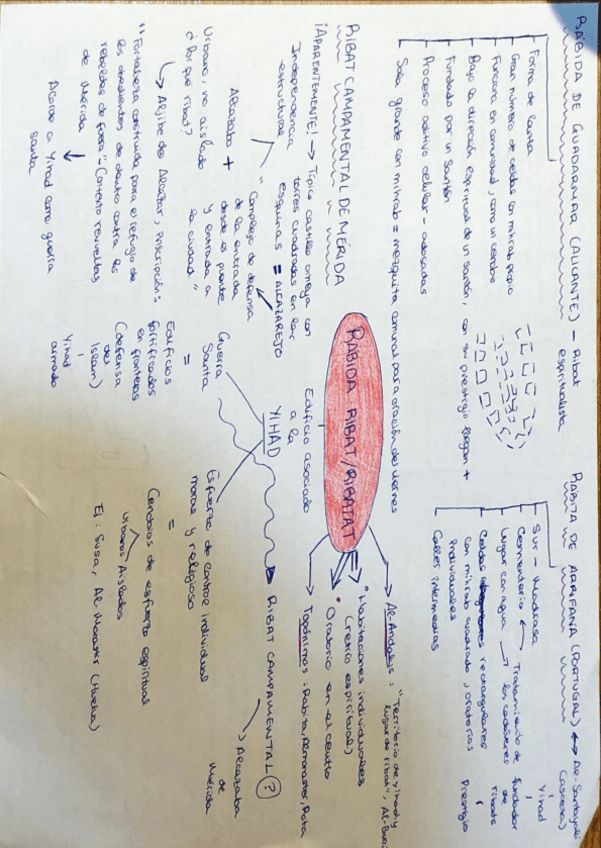 RÁBIDA DE GUARDAMAR (ALICANTE) – Ribat
espiritualista
Forma de
Gran número de celdas con mihrab propio
Funciona en comunidad, como un cenobio
Bajo la dirección espiritual de un santón, con su prestigio llegan +
Fundado por un santón
Proceso aditivo celular – adosadas
Sala grande con mihrab = mezquita comunal para oración del viernes
RÁBITA DE ARRIFANA (PORTUGAL) ↔
Sur – Madrasa
Cementerio ← Tratamiento de
Lugar con agua → los cadáveres
Celdas rectangulares
con mihrab cuadrado, oratorios
individuales
Calles intermedias
Yihad
fundador
de
ribats
Prestigio
RIBAT CAMPAMENTAL DE MÉRIDA
¡APARENTEMENTE! → Típico castillo omeya con
torres cuadradas en las
esquinas = ALCAZAREJO
Independencia
estructural
Alcazaba +
"Complejo de defensa
de la entrada
desde el puente
y entrada a
la ciudad"
Urbano, no aislado
¿Por qué ribat?
↳ Aljibe del Alcázar, inscripción:
"Fortaleza construida para el refugio de
los obedientes de dentro contra los
rebeldes de fuera" – Contexto revueltas
de Mérida
↓
Acorde a Yihad como guerra
santa
RÁBIDA RIBAT/RIBATAT
Edificio asociado
a la
YIHAD
Guerra
Santa
=
Edificios
fortificados
en fronteras
(defensa
del
Islam)
Yihad
armado
Esfuerzo de control individual
moral y religioso
=
Cenobios de esfuerzo espiritual
Urbanos Aislados
Ej: Susa, Al-Monastir (Huelva)
Al-Andalus: "Territorio de yihad y
lugar de ribat",
• Habitaciones individuales
(retiro espiritual)
• Oratorio en el centro
Topónimos: Rábita, Almonaster, Rota
RIBAT CAMPAMENTAL ?
↳ Alcazaba
de
Mérida